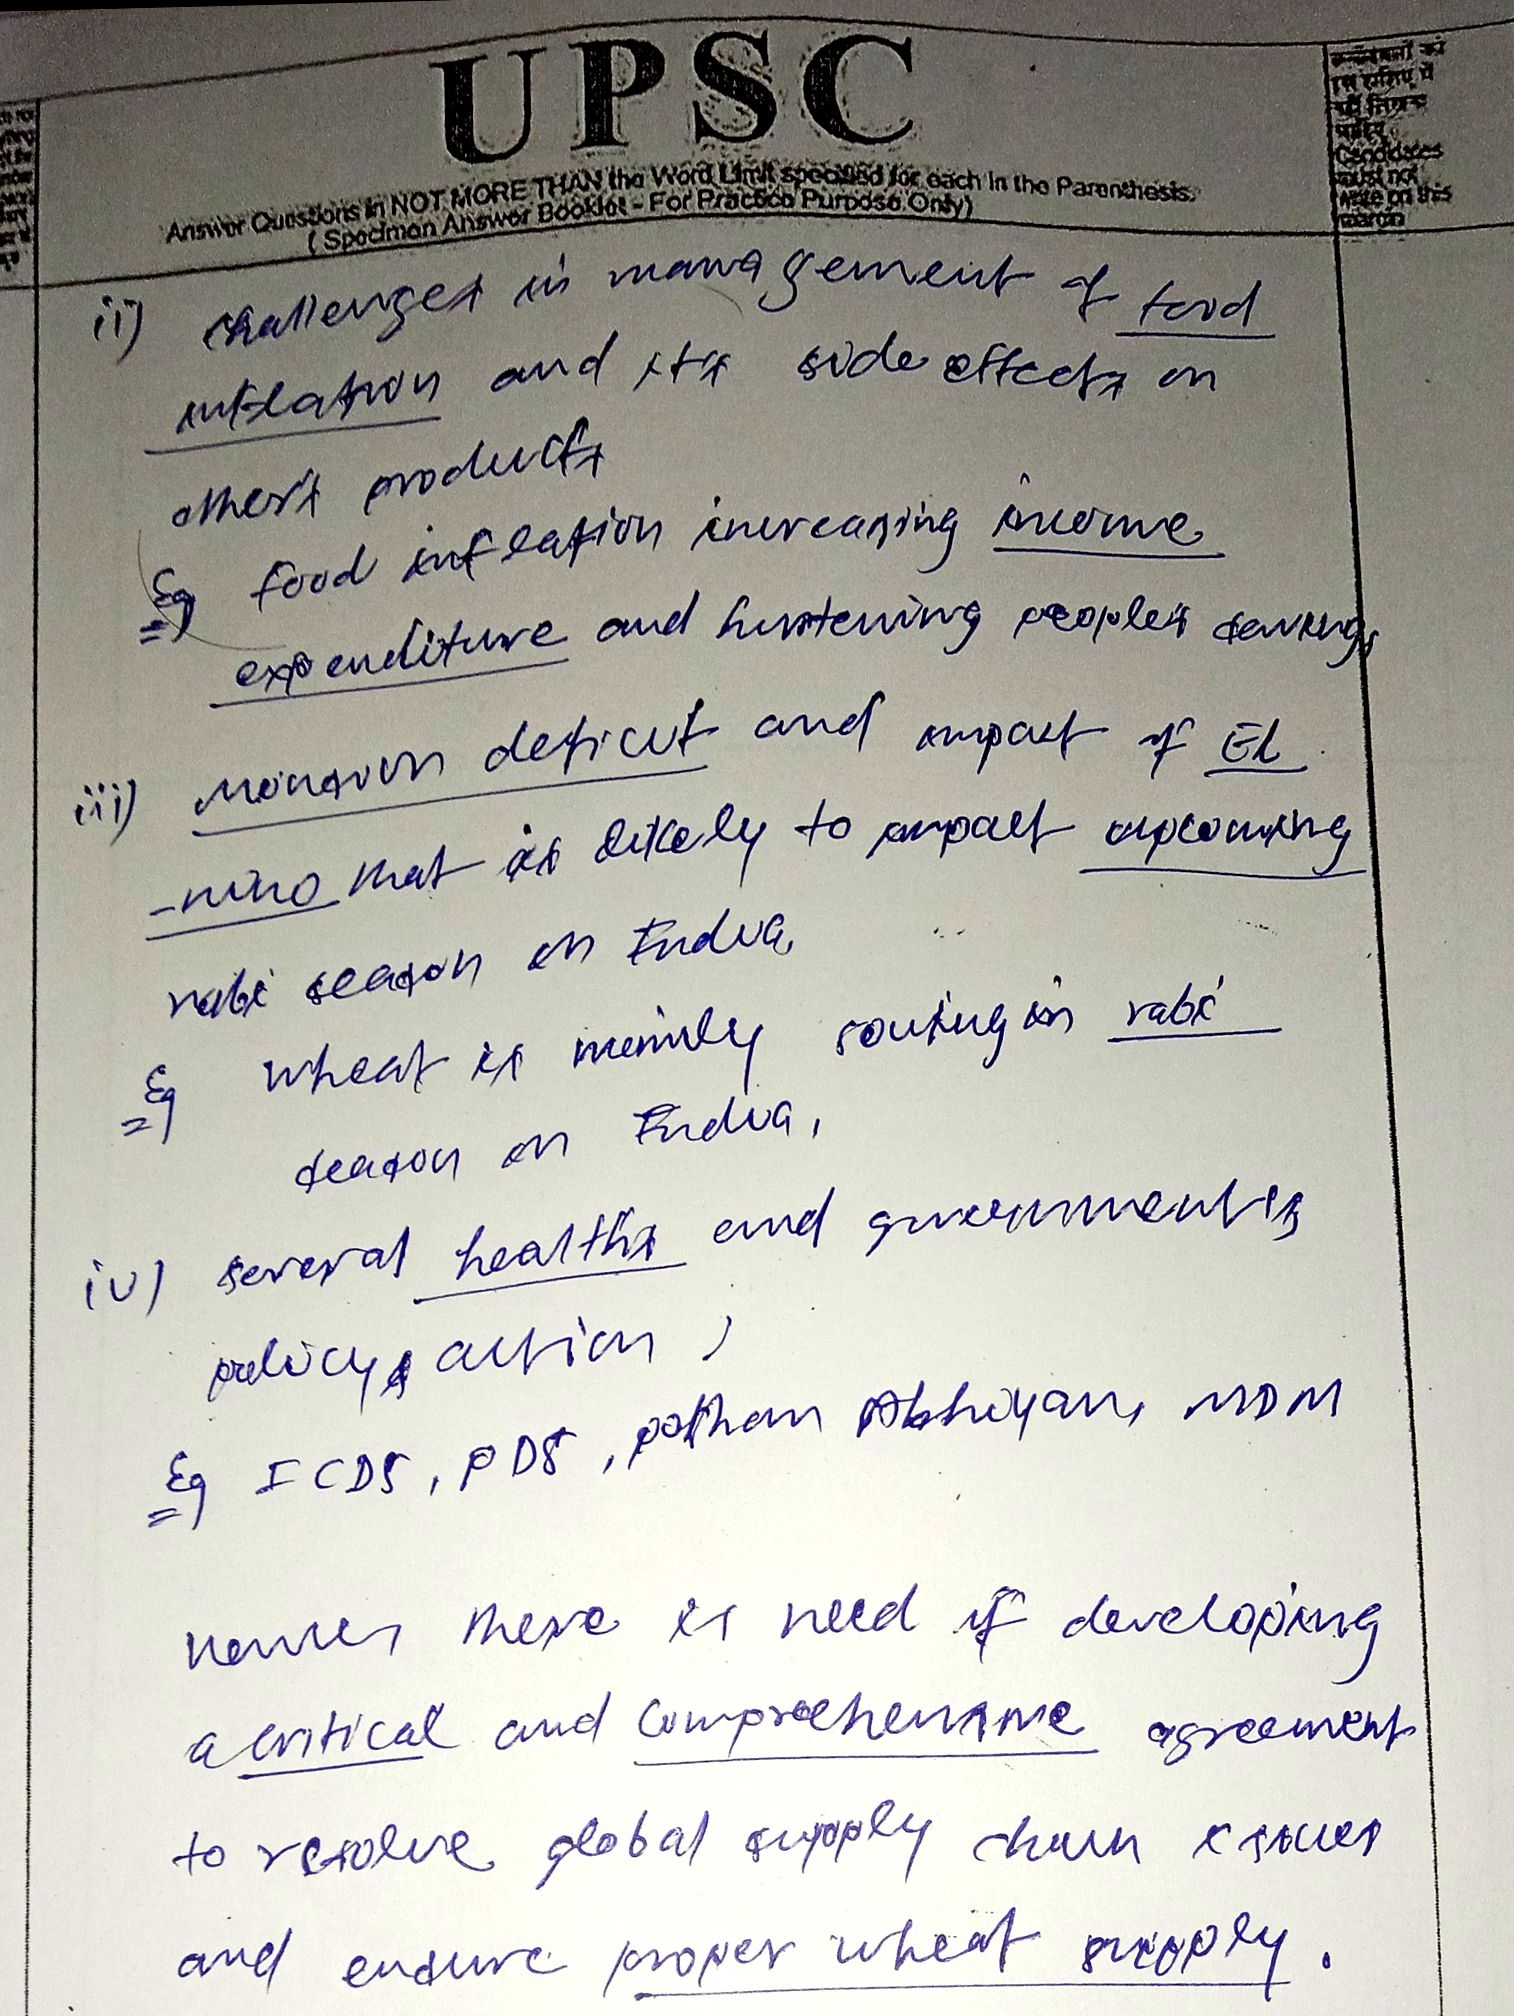 UPSC
Answer Questions in NOT MORE THAN the Word Limit specified for each in the Parenthesis.
( Specimen Answer Booklet - For Practice Purpose Only)
Candidates
must not
write on this
margin
ii) challenges in management of food
inflation and its side effects on
others products
Eg food inflation increasing income
expenditure and people's savings
iii) Monsoon deficit and impact of El
-nino that is likely to impact upcoming
rabi season in India
Eg wheat is mainly sowing in rabi
season in India,
iv) several healths and governments
policy & action ;
Eg ICDS, PDS, poshan Abhiyan, MDM
Hence, there is need of developing
a critical and comprehensive agreement
to resolve global supply chain issues
and ensure proper wheat supply.